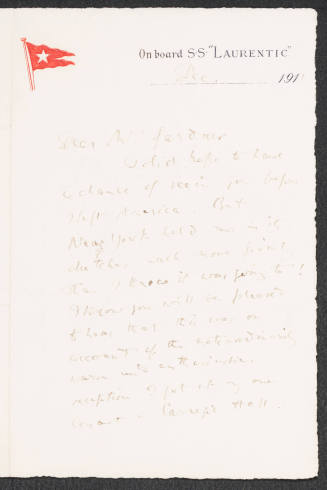 On board S.S. "LAURENTIC"
Dec. 191
Dear Mrs Gardner
I did hope to have
a chance of seeing you before
I left America. But
New York held me in its
clutches much more firmly
than I knew it was going to!
I know you will be pleased
to hear that this was on
account of the extraordinarily
warm and enthusiastic
reception I got at my one
concert - Carnegie Hall.